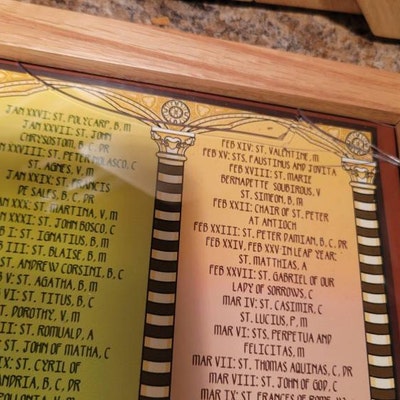 JAN XXVI: ST. POLYCARP, B, M
JAN XXVII: ST. JOHN
CHRYSOSTOM, B, C, DR
XXVIII: ST. PETER NOLASCO, C
ST. AGNES, V, M
JAN XXIX: ST. FRANCIS
DE SALES, B, C, DR
XXX: ST. MARTINA, V, M
XXXI: ST. JOHN BOSCO, C
I: ST. IGNATIUS, B, M
III: ST. BLAISE, B, M
ST. ANDREW CORSINI, B, C
V: ST. AGATHA, B, M
VI: ST. TITUS, B, C
ST. DOROTHY, V, M
VII: ST. ROMUALD, A
ST. JOHN OF MATHA, C
IX: ST. CYRIL OF
ANDRIA, B, C, DR
POLLONIA, V, M
FEB XIV: ST. VALENTINE, M
FEB XV: STS. FAUSTINUS AND JOVITA
FEB XVIII: ST. MARIE
BERNADETTE SOUBIROUS, V
ST. SIMEON, B, M
FEB XXII: CHAIR OF ST. PETER
AT ANTIOCH
FEB XXIII: ST. PETER DAMIAN, B, C, DR
FEB XXIV, FEB XXV IN LEAP YEAR:
ST. MATTHIAS, A
FEB XXVII: ST. GABRIEL OF OUR
LADY OF SORROWS, C
MAR IV: ST. CASIMIR, C
ST. LUCIUS, P, M
MAR VI: STS. PERPETUA AND
FELICITAS, M
MAR VII: ST. THOMAS AQUINAS, C, DR
MAR VIII: ST. JOHN OF GOD, C
MAR IX: ST. FRANCES OF ROME